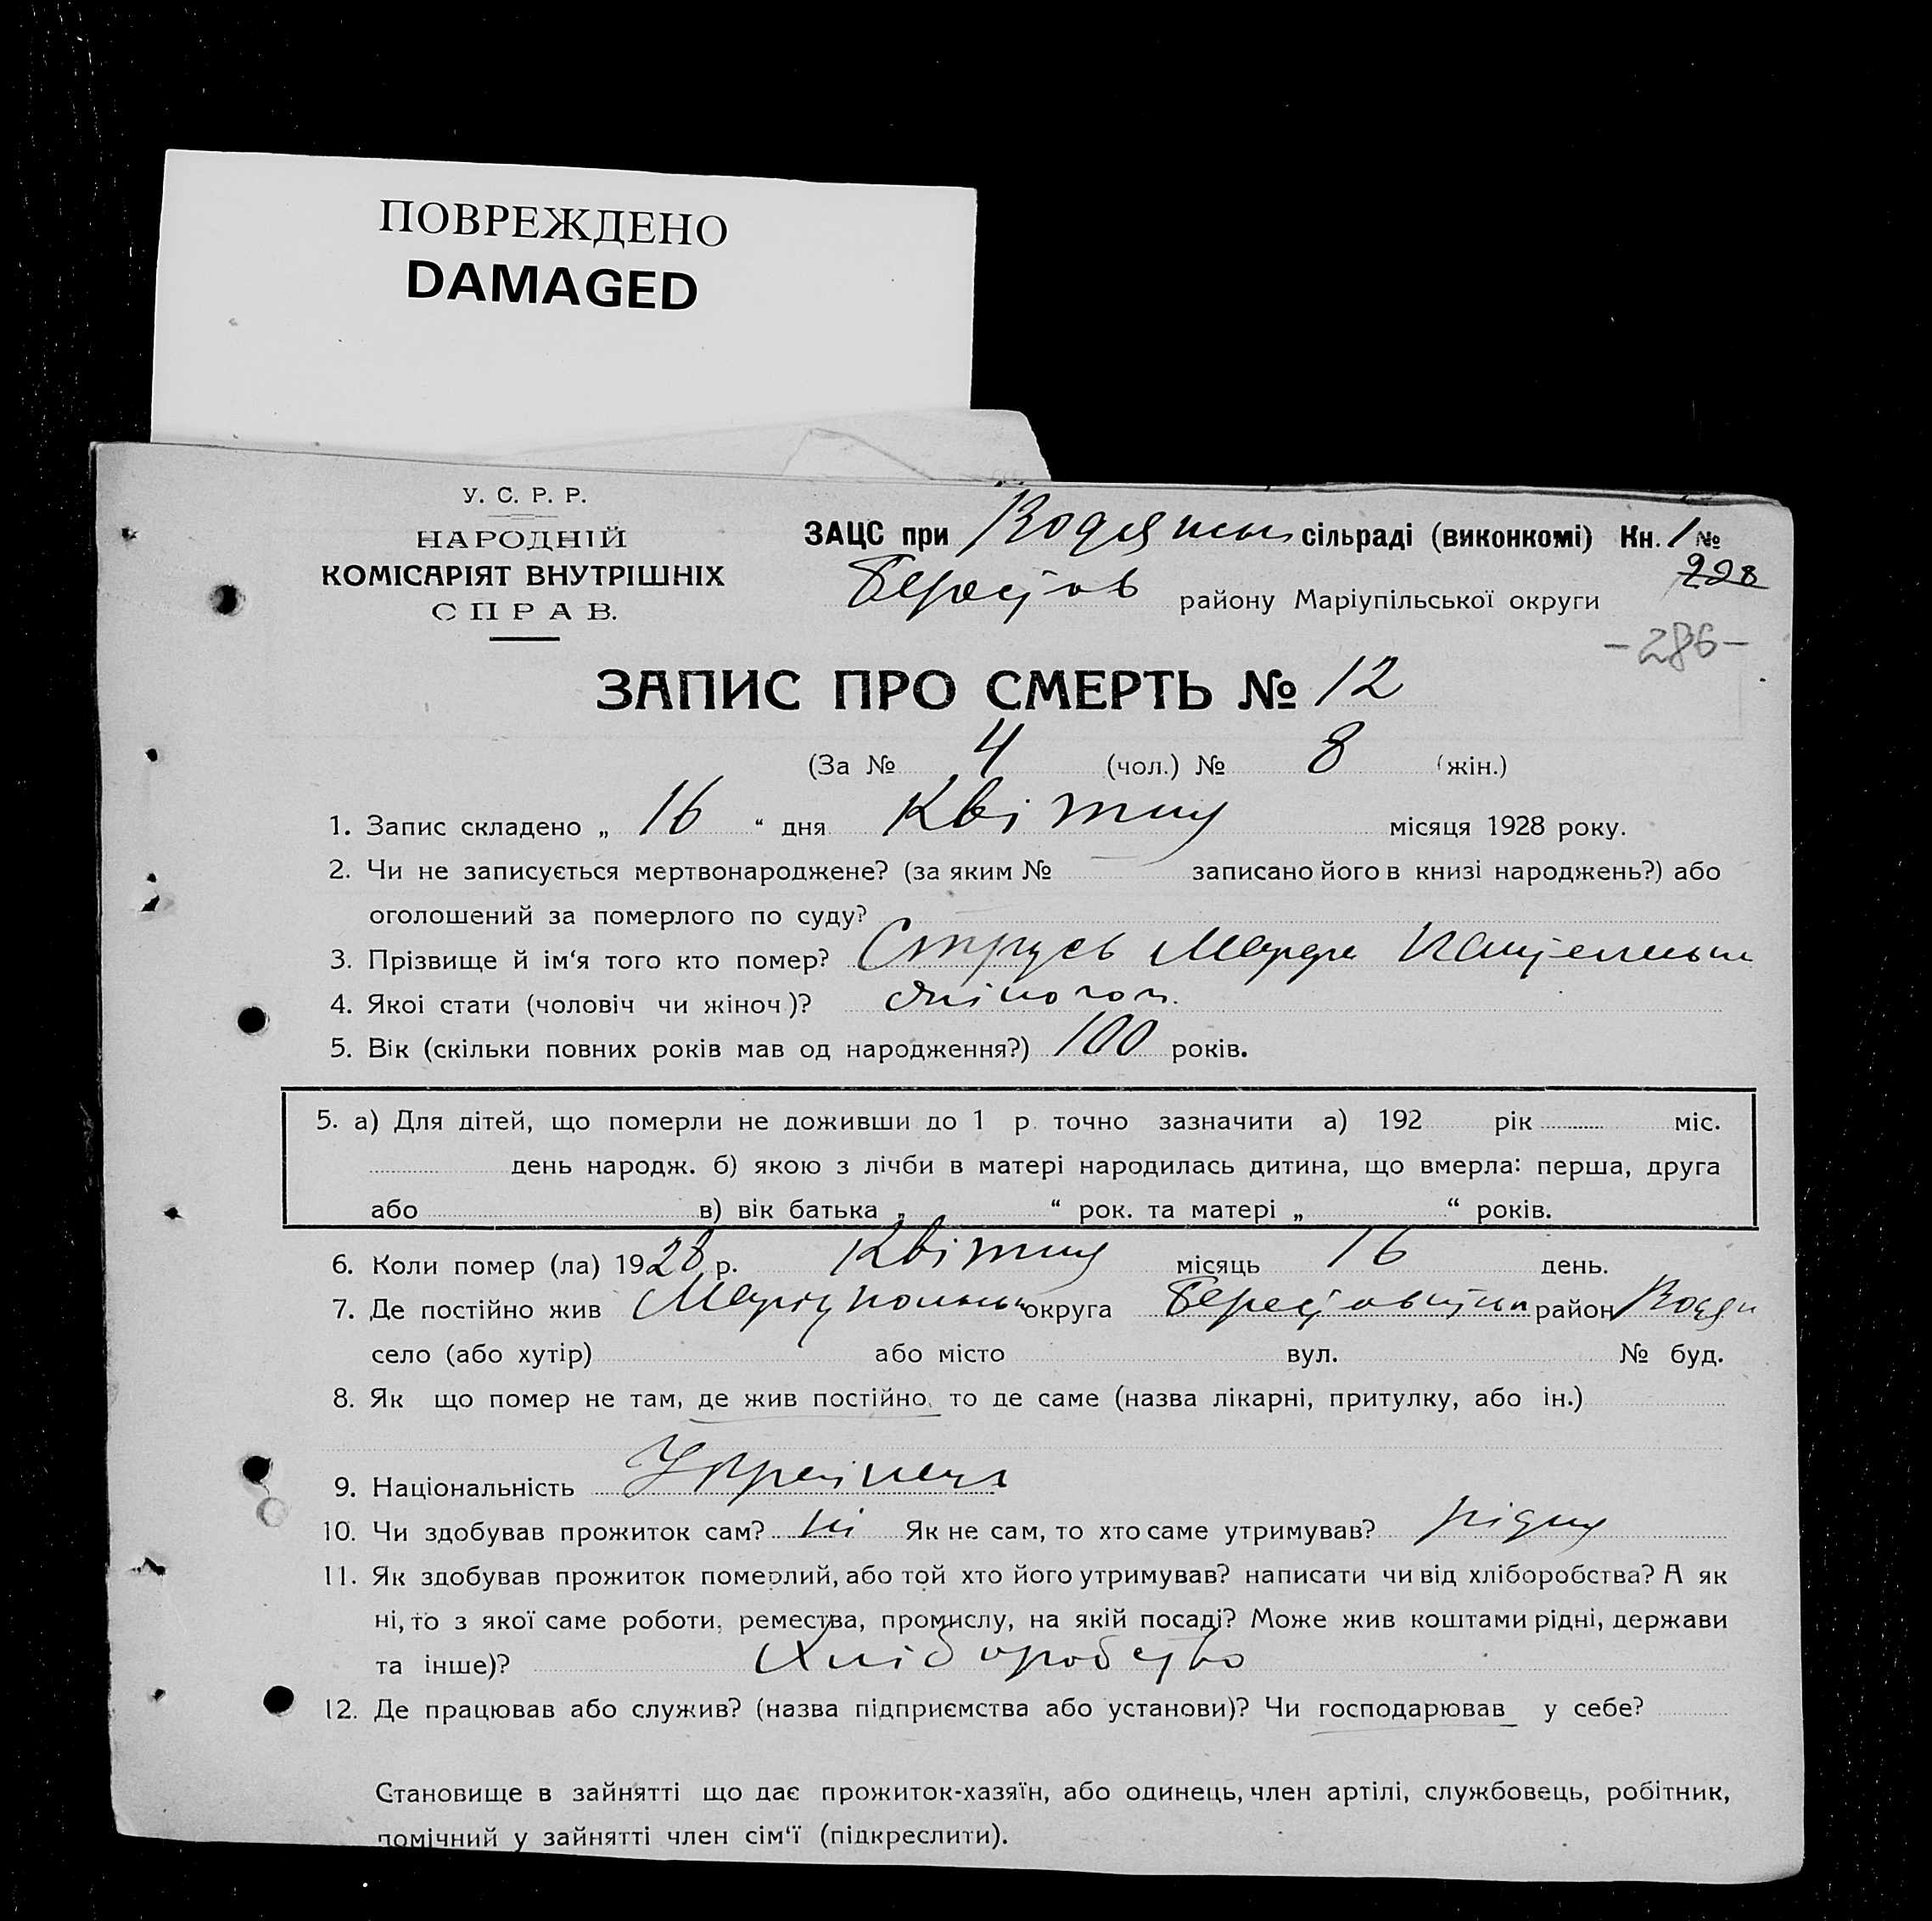 ПОВРЕЖДЕНО
DAMAGED
У. С. Р. Р.
НАРОДНІЙ
КОМІСАРІЯТ ВНУТРІШНІХ
СПРАВ.
ЗАЦС при Водян сільраді (виконкомі) Кн. 1 №
228
Берестов району Маріупільської округи
-286-
ЗАПИС ПРО СМЕРТЬ № 12
(За № 4 (чол.) № 8 (жін.)
1. Запис складено „ 16 “ дня Квітня місяця 1928 року.
2. Чи не записується мертвонароджене? (за яким № — записано його в книзі народжень?) або
оголошений за померлого по суду?
3. Прізвище й ім‘я того кто помер? Струсь Марфа
4. Якої стати (чоловіч чи жіноч)? жіноч.
5. Вік (скільки повних років мав од народження?) 100 років.
5. а) Для дітей, що померли не доживши до 1 р. точно зазначити а) 192 рік міс.
день народж. б) якою з лічби в матері народилась дитина, що вмерла: перша, друга
або в) вік батька „ “ рок. та матері „ “ років.
6. Коли помер (ла) 1928 р. Квітня місяць 16 день.
7. Де постійно жив округа район
село (або хутір) або місто вул. № буд.
8. Як що помер не там, де жив постійно, то де саме (назва лікарні, притулку, або ін.)
9. Національність Українка
10. Чи здобував прожиток сам? ні Як не сам, то хто саме утримував? рідня
11. Як здобував прожиток померлий, або той хто його утримував? написати чи від хліборобства? А як
ні, то з якої саме роботи, ремества, промислу, на якій посаді? Може жив коштами рідні, держави
та інше)? Хліборобство
12. Де працював або служив? (назва підприємства або установи)? Чи господарював у себе?
Становище в зайнятті що дає прожиток-хазяїн, або одинець, член артілі, службовець, робітник,
помічний у зайнятті член сім‘ї (підкреслити).